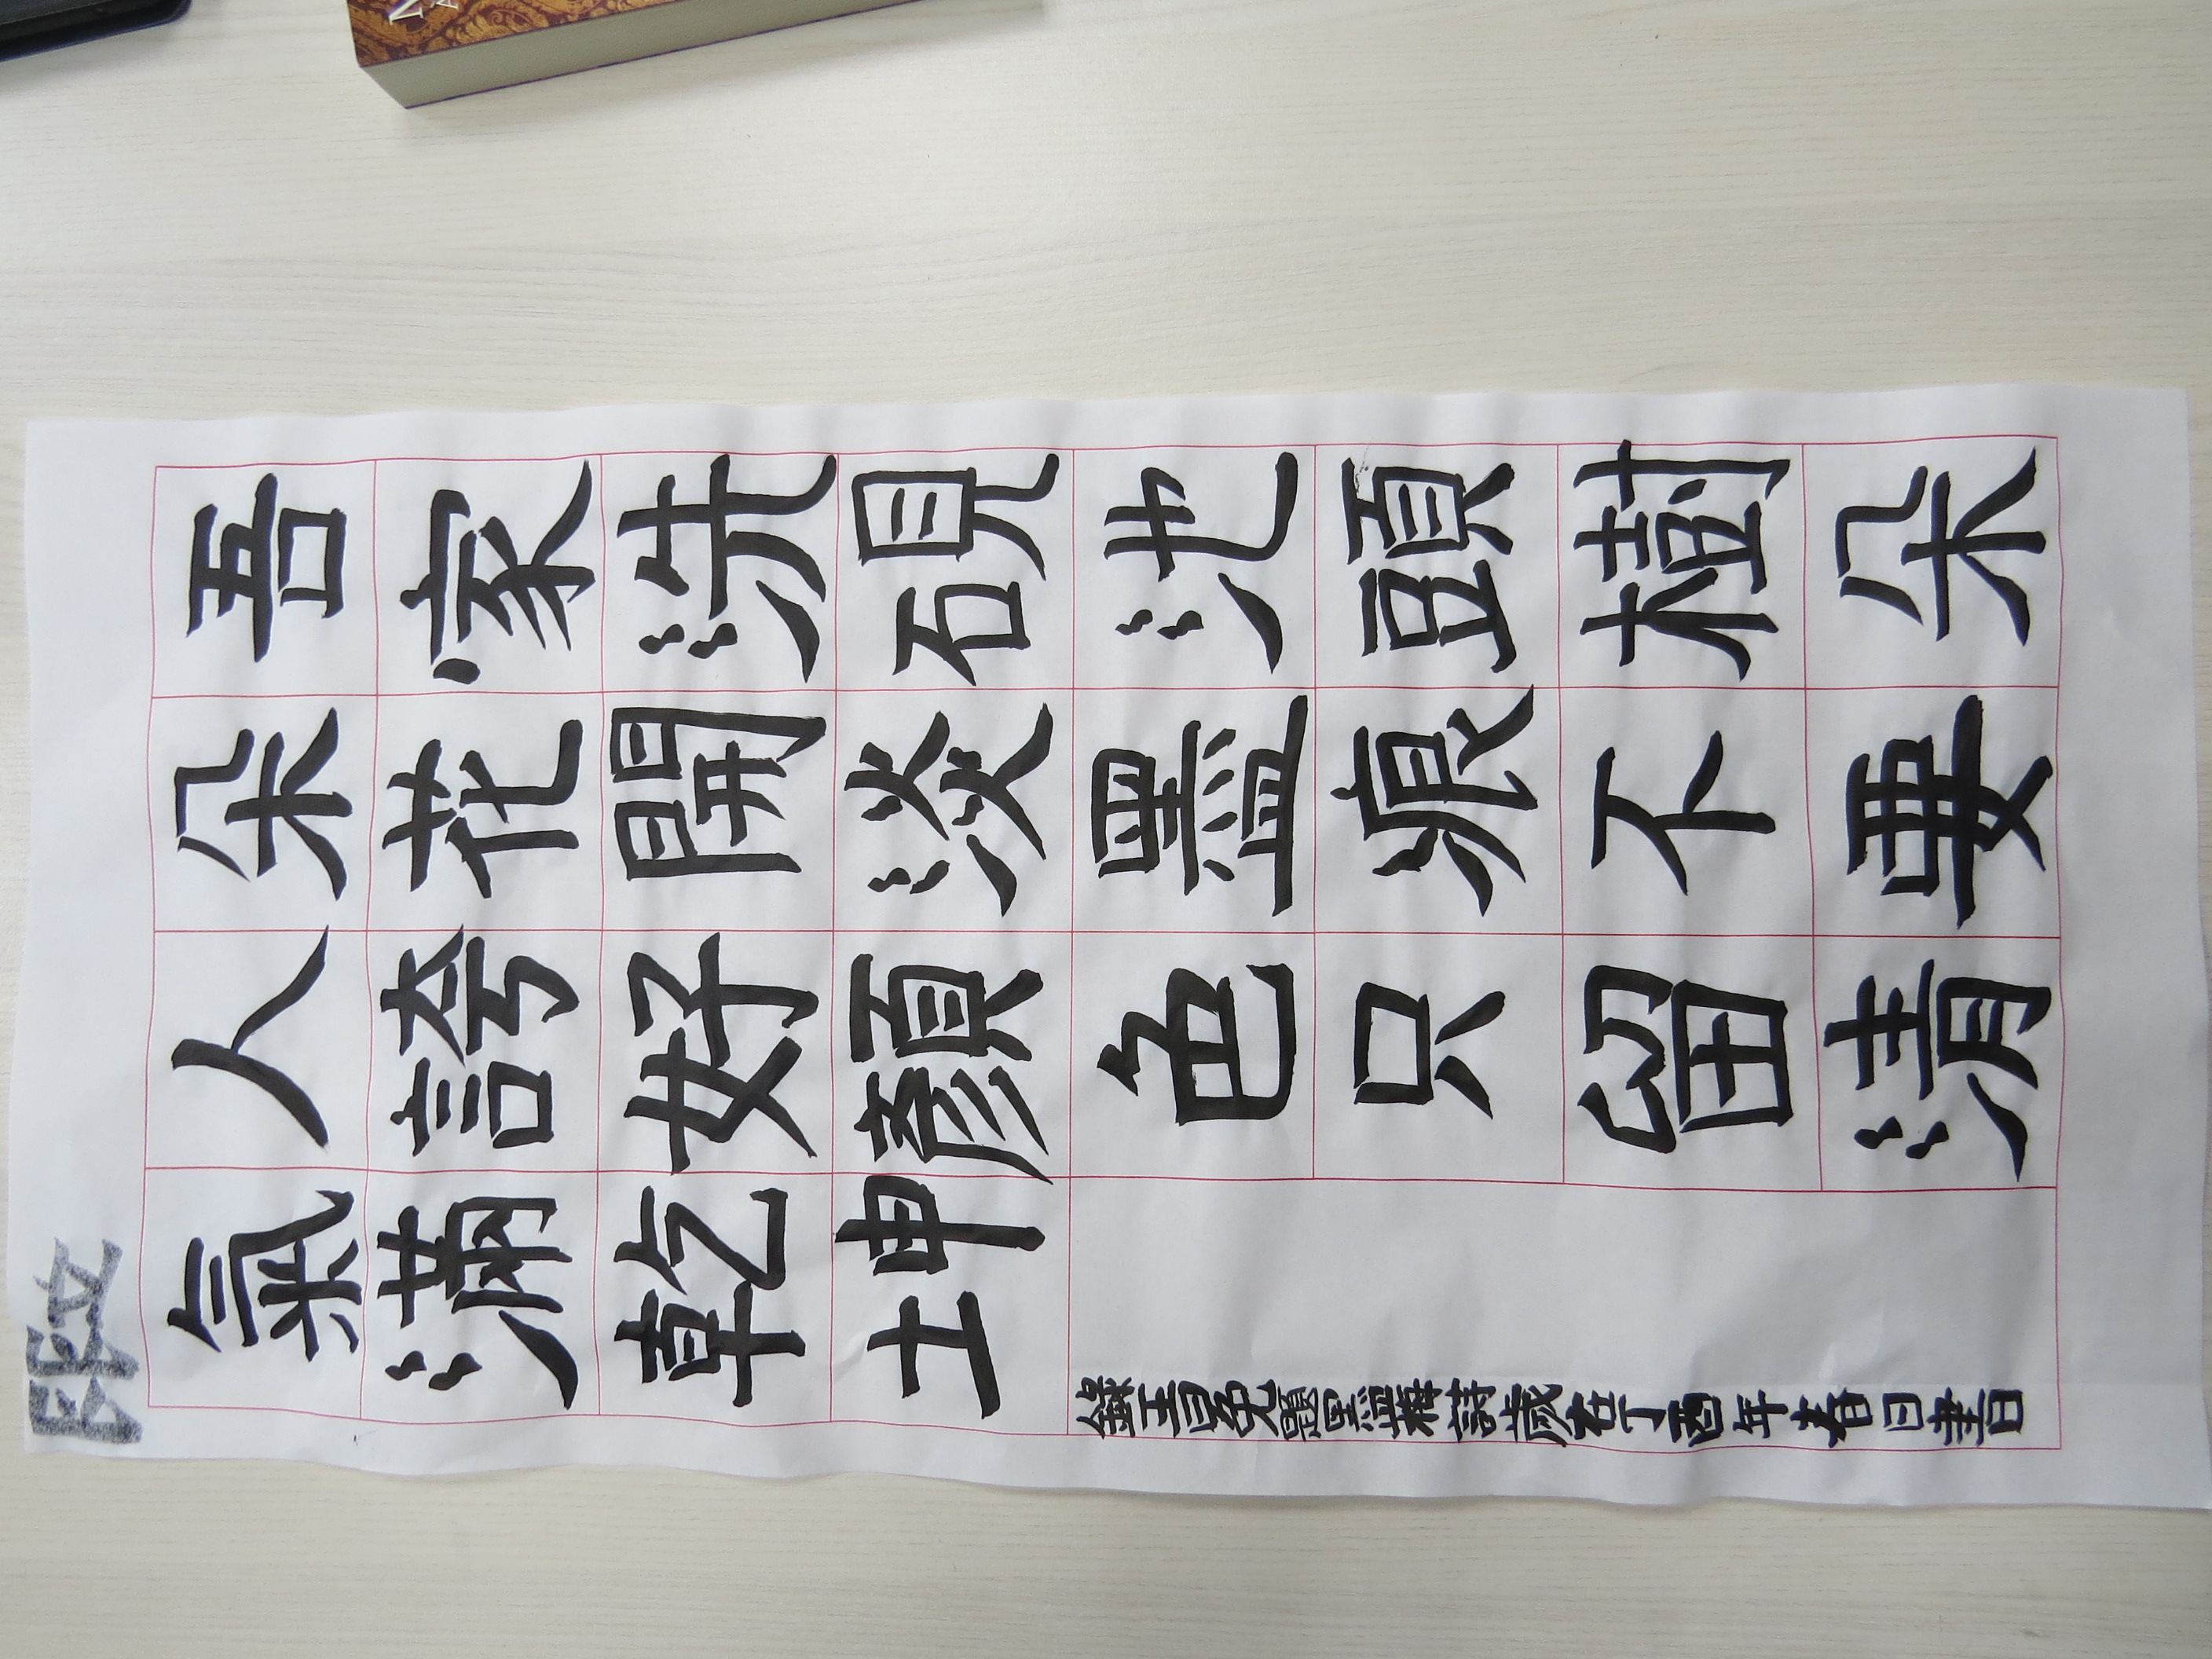 吾家洗硯池頭樹朵
朵花開淡墨痕不要
人誇好顏色只留清
氣滿乾坤
錄王冕題墨梅詩歲在丁酉年春日書